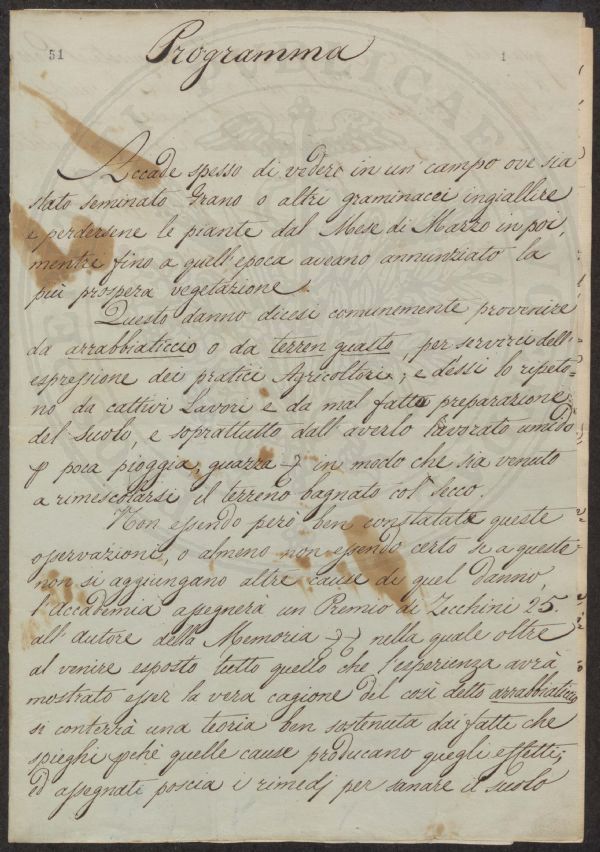 51
1
Programma
Accade spesso di vedere in un' campo ove sia
stato seminato Grano o altri graminacci ingiallire
e perdersene le piante dal Mese di Marzo in poi,
mentre fino a quell'epoca aveano annunziato la
più prospera vegetazione.
Questo danno dicesi comunemente provenire
da arrabbiaticcio o da terren guasto, per servirci dell'
espressione dei pratici Agricoltori; e d'essi lo ripeto-
no da cattivi Lavori e da mal fatta preparazione
del Suolo, e soprattutto dall'averlo lavorato umido
p poca pioggia, guazza in modo che sia venuto
a rimescolarsi il terreno bagnato col secco.
Non essendo però ben constatate queste
osservazioni, o almeno non essendo certo se a queste
non si aggiungano altre cause di quel danno,
l'Accademia assegnerà un Premio di Zecchini 25.
all'autore della Memoria nella quale oltre
al venire esposto tutto quello che l'esperienza avrà
mostrato esser la vera cagione del così detto arrabbiaticcio
si conterrà una teoria ben sostenuta dai fatti che
spieghi pchè quelle cause producano quegli effetti;
ed assegnati poscia i rimedj per sanare il suolo